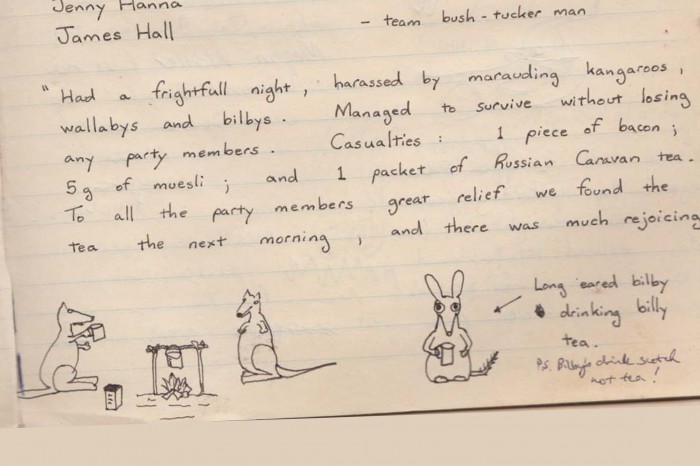 Jenny Hanna
James Hall
- team bush-tucker man
" Had a frightfull night, harassed by marauding kangaroos,
wallabys and bilbys. Managed to survive without losing
any party members. Casualties: 1 piece of bacon;
5g of muesli; and 1 packet of Russian Caravan tea.
To all the party members great relief we found the
tea the next morning, and there was much rejoicing
Long eared bilby
drinking billy
tea.
P.S. Bilby's drink scotch
not tea!